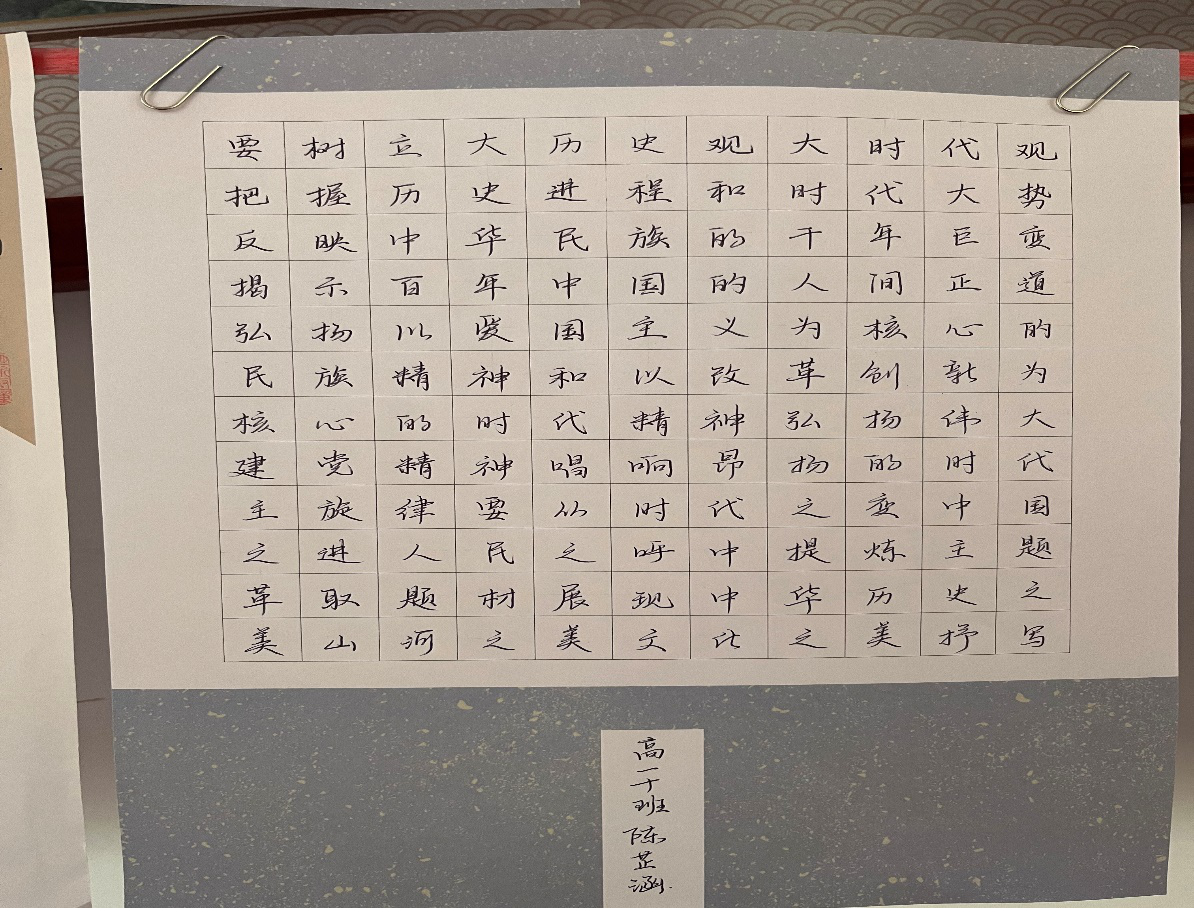 要树立大历史观大时代观
把握历史进程和时代大势
反映中华民族的千年巨变
揭示百年中国的人间正道
弘扬以爱国主义为核心的
民族精神和以改革创新为
核心的时代精神弘扬伟大
建党精神唱响昂扬的时代
主旋律要从时代之变中国
之进人民之呼中提炼主题
革取题材展现中华历史之
美山河之美文化之美抒写
高一十班陈芷涵